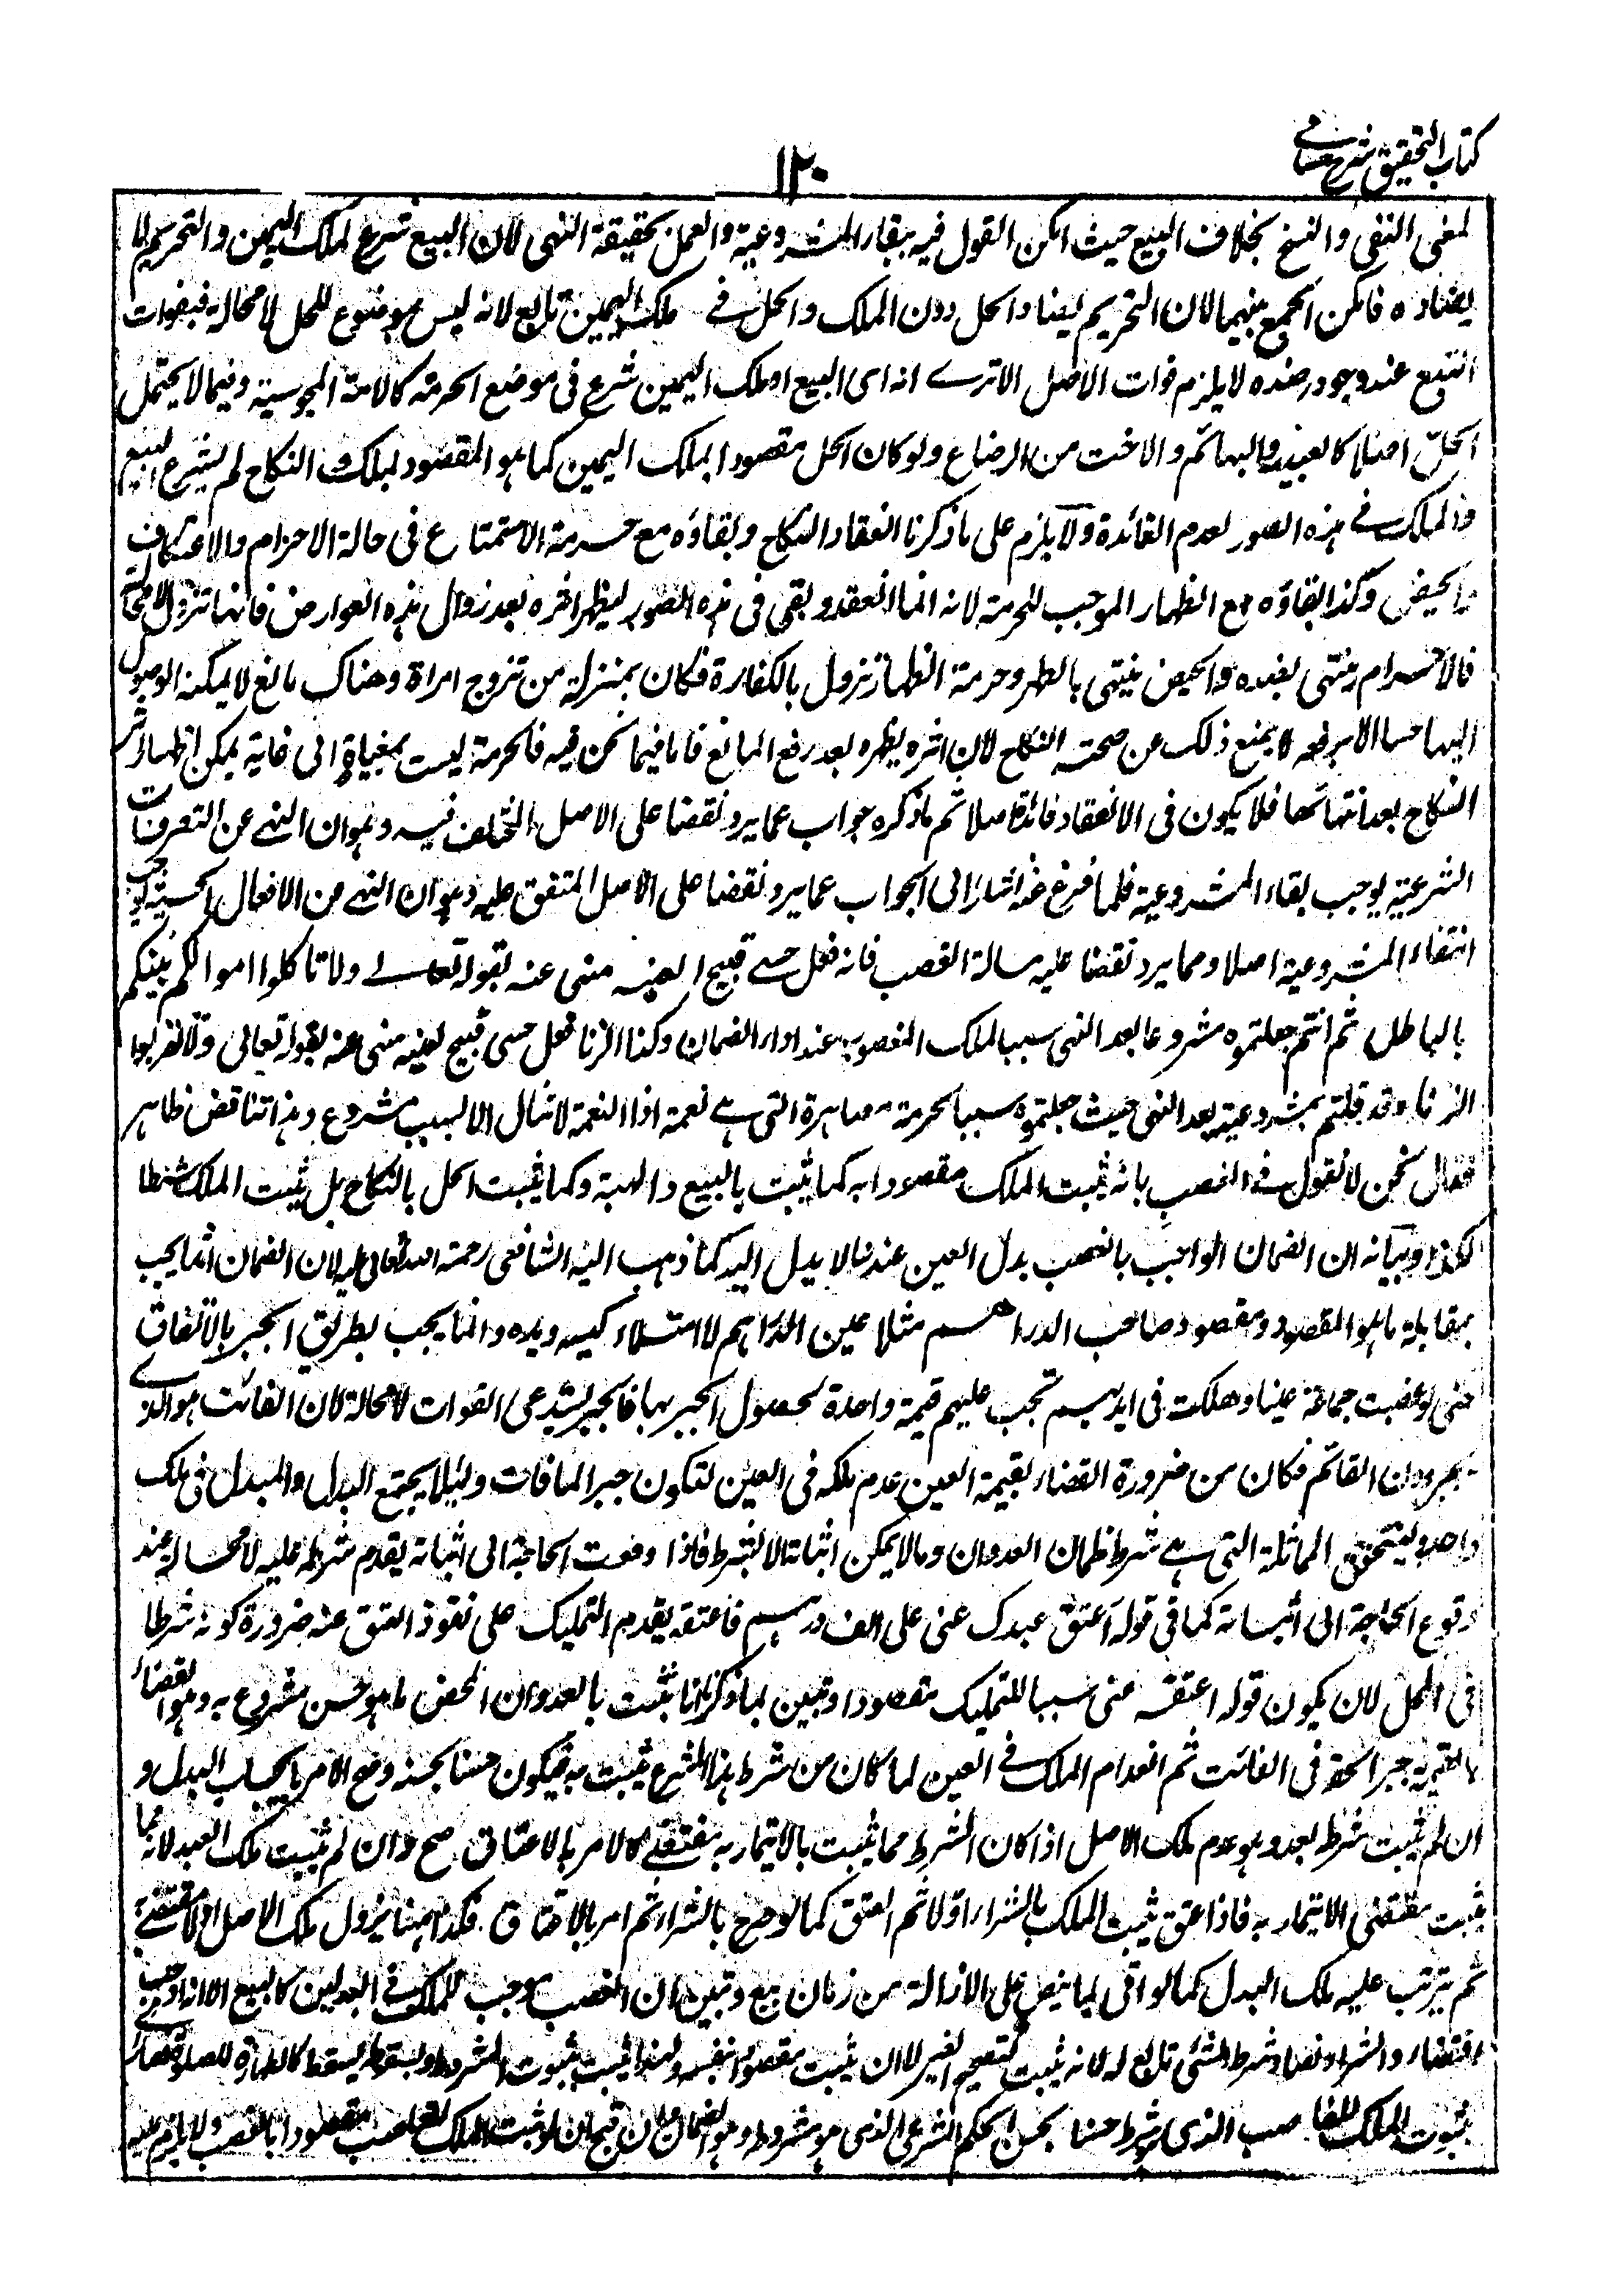 كتاب التحقيق شرح حسامي
١٢٠
لمعنى النفى والنسخ بخلاف البيع حيث امكن القول فيه ببقاء المشروعية والعمل بحقيقة النهى لان البيع شرع لملك اليمين والتحريم لا
يضاده فامكن الجمع بينهما لان التحريم يضاد الحل دون الملك والحل فى ملك اليمين تابع لانه ليس بموضوع للحل لا محالة فبفوات
التبع عند وجود ضده لا يلزم فوات الاصل الا ترى انه اى البيع او ملك اليمين شرع فى موضع الحرمة كالامة المجوسية وفيما لا يحتمل
الحل اصلا كالعبيد والبهائم والاخت من الرضاع ولو كان الحل مقصودا بملك اليمين كما هو المقصود لملك النكاح لم يشرع البيع
والملك فى هذه الصور لعدم الفائدة ولا يلزم على ما ذكرنا انعقاد النكاح وبقاؤه مع حرمة الاستمتاع فى حالة الاحرام والاعتكاف
والحيض وكذا بقاؤه مع الظهار الموجب للحرمة لانه انما انعقد وبقى فى هذه الصور ليظهر اثره بعد زوال هذه العوارض فانها تزول لا محالة
فالاحرام ينتهى بضده والحيض ينتهى بالطهر وحرمة الظهار تزول بالكفارة فكان بمنزلة من تزوج امراة وهناك مانع لا يمكنه الوصول
اليها حسا الا برفعه لا يمنع ذلك عن صحة النكاح لان اثره يظهر بعد رفع المانع فاما فيما نحن فيه فالحرمة ليست بمغياة الى غاية يمكن اظهار اثر
النكاح بعد انتهائها فلا يكون فى الانعقاد فائدة اصلا ثم ما ذكره جواب عما يرد نقضا على الاصل المختلف فيه وهو ان النهى عن التصرفات
الشرعية يوجب بقاء المشروعية فلما فرغ عنه اشار الى الجواب عما يرد نقضا على الاصل المتفق عليه وهو ان النهى عن الافعال الحسية يوجب
انتفاء المشروعية اصلا ومما يرد نقضا عليه مسالة الغصب فانه فعل حسى قبيح لعينه منهى عنه بقوله تعالى ولا تاكلوا اموالكم بينكم
بالباطل ثم انتم جعلتموه مشروعا بعد النهى سببا لملك المغصوب عند اداء الضمان وكذا الزنا فعل حسى قبيح لعينه منهى عنه بقوله تعالى ولا تقربوا
الزنا وقد قلتم بمشروعيته بعد النهى حيث جعلتموه سببا لحرمة مصاهرة التى هى نعمة اذ النعمة لا تنال الا بسبب مشروع وهذا تناقض ظاهر
فقال نحن لا نقول فى الغصب بانه يثبت الملك مقصودا به كما يثبت بالبيع والهبة وكما يثبت الحل بالنكاح بل يثبت الملك شرطا
لكذا وبيانه ان الضمان الواجب بالغصب بدل العين عندنا لا بدل اليد كما ذهب اليه الشافعى رحمة الله تعالى عليه لان الضمان انما يجب
بمقابلة ما هو المقصود ومقصود صاحب الدراهم مثلا عين الدراهم لا امتلاء كيسه ويده وانما يجب بطريق الجبر بالاتفاق
حتى لو غصبت جماعة عينا وهلكت فى ايديهم تجب عليهم قيمة واحدة لحصول الجبر بها فالجبر يستدعى الفوات لا محالة لان الفائت هو الذى
يجبر دون القائم فكان من ضرورة القضاء بقيمة العين عدم ملكه فى العين لتكون جبرا لما فات ولئلا يجتمع البدل والمبدل فى ملك
واحد وليتحقق المماثلة التى هى شرط ضمان العدوان وما لا يمكن اثباته الا بشرط فاذا وقعت الحاجة الى اثباته يقدم شرطه عليه لا محالة عند
وقوع الحاجة الى اثباته كما فى قوله اعتق عبدك عنى على الف درهم فاعتقه يقدم التمليك على نفوذ العتق عنه ضرورة كونه شرطا
فى المحل لان يكون قوله اعتقه عنى سببا للتمليك مقصودا وتبين بما ذكرنا انا نثبت بالعدوان المحض ما هو حسن مشروع به وهو القضاء
بالقيمة جبرا لحقه فى الفائت ثم انعدام الملك فى العين لما كان من شرط هذا المشروع يثبت به فيكون حسنا بحسنه وضح الامر بايجاب البدل و
ان لم يثبت شرطه بعد وهو عدم ملك الاصل اذا كان الشرط مما يثبت بالايتمار به مقتضى كالامر بالاعتاق صح وان لم يثبت ملك العبد لانها
يثبت مقتضى الايتمار به فاذا عتق يثبت الملك بالشراء اولا ثم العتق كما لو صرح بالشراء ثم امر بالاعتاق فكذا ههنا يزول ملك الاصل اولا مقتضى
ثم يترتب عليه ملك البدل كما لو اتى بما ينص على الازالة من زمان بيع وتبين ان الغصب موجب للملك فى البدلين كالبيع الا انه اوجب
اقتضاء والشراء نصا وشرط الشئ تابع له لانه يثبت لتصحيح الغير لا ان يثبت مقصودا بنفسه ولهذا يثبت بثبوت المشروط ويسقط بسقوطه كالطهارة للصلوة فصار
ثبوت الملك للغاصب الذى هو شرط حسنا بحسن الحكم الشرعى الذى هو مشروط وهو الضمان وان قبح ان لو ثبت الملك للغاصب مقصودا بالغصب ولا يلزم عليه